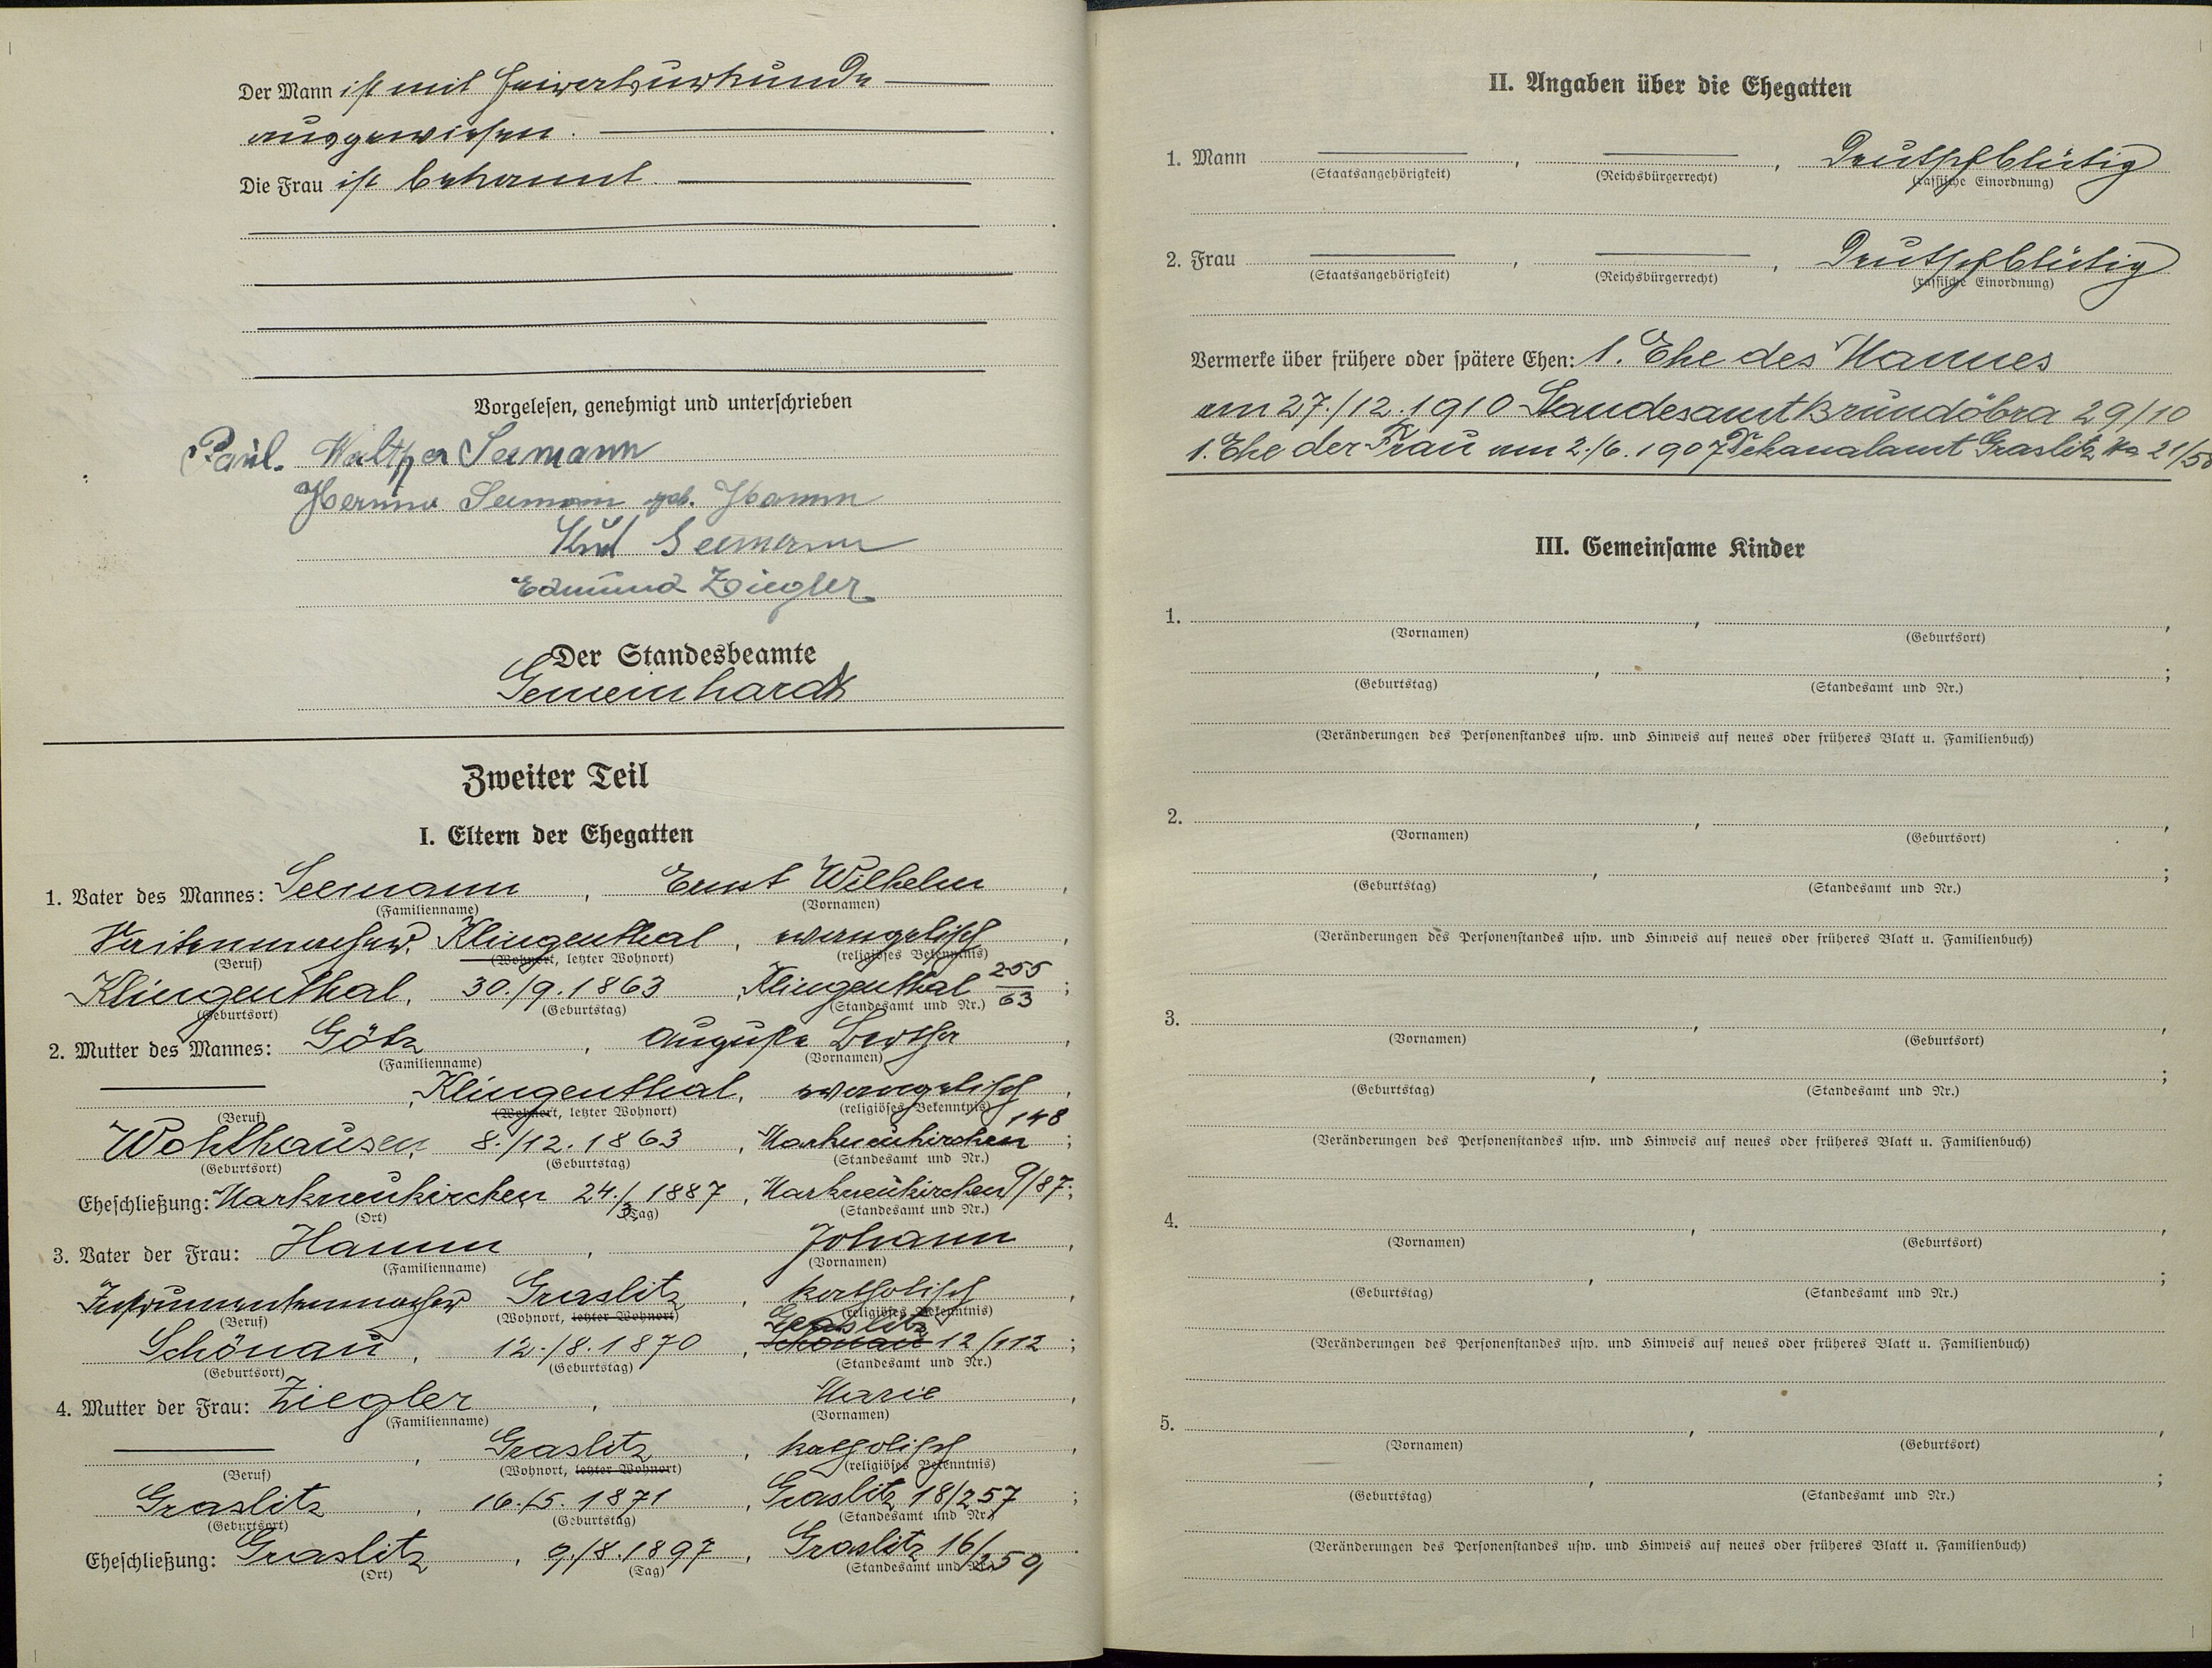 Der Mann ist mit Heiratsurkunde
ausgewiesen.
Die Frau ist bekannt.
Vorgelesen, genehmigt und unterschrieben
Paul Walther Seemann
Hermine Seemann geb. Hamm
Seemann
Edmund Ziegler
Der Standesbeamte
Gemeinhardt
Zweiter Teil
I. Eltern der Ehegatten
1. Vater des Mannes: Seemann, Ernst Wilhelm,
(Familienname) (Vornamen)
Saitenmacher, Klingenthal, evangelisch,
(Beruf) (Wohnort, letzter Wohnort) (religiöses Bekenntnis)
Klingenthal, 30./9.1863, Klingenthal 255/63;
(Geburtsort) (Geburtstag) (Standesamt und Nr.)
2. Mutter des Mannes: Götz, Auguste Bertha,
(Familienname) (Vornamen)
, Klingenthal, evangelisch,
(Beruf) (Wohnort, letzter Wohnort) (religiöses Bekenntnis)
Wohlhausen, 8./12.1863, Markneukirchen 148;
(Geburtsort) (Geburtstag) (Standesamt und Nr.)
Eheschließung: Markneukirchen 24./3.1887, Markneukirchen 9/87;
(Ort) (Tag) (Standesamt und Nr.)
3. Vater der Frau: Hamm, Johann,
(Familienname) (Vornamen)
Instrumentenmacher Graslitz, katholisch,
(Beruf) (Wohnort, letzter Wohnort) (religiöses Bekenntnis)
Graslitz
Schönau, 12./8.1870, Schönau 12/112;
(Geburtsort) (Geburtstag) (Standesamt und Nr.)
4. Mutter der Frau: Ziegler, Marie,
(Familienname) (Vornamen)
, Graslitz, katholisch,
(Beruf) (Wohnort, letzter Wohnort) (religiöses Bekenntnis)
Graslitz, 16./5.1871, Graslitz 18/257;
(Geburtsort) (Geburtstag) (Standesamt und Nr.)
Eheschließung: Graslitz, 9./8.1897, Graslitz 16/259
(Ort) (Tag) (Standesamt und Nr.)
II. Angaben über die Ehegatten
1. Mann , , Deutschblütig
(Staatsangehörigkeit) (Reichsbürgerrecht) (rassische Einordnung)
2. Frau , , Deutschblütig
(Staatsangehörigkeit) (Reichsbürgerrecht) (rassische Einordnung)
Vermerke über frühere oder spätere Ehen: 1. Ehe des Mannes
am 27./12.1910 Standesamt Brundöbra 29/10
1. Ehe der Frau am 2./6.1907 Dekanalamt Graslitz 21/58
III. Gemeinsame Kinder
1. , ,
(Vornamen) (Geburtsort)
, ;
(Geburtstag) (Standesamt und Nr.)
(Veränderungen des Personenstandes usw. und Hinweis auf neues oder früheres Blatt u. Familienbuch)
2. , ,
(Vornamen) (Geburtsort)
, ;
(Geburtstag) (Standesamt und Nr.)
(Veränderungen des Personenstandes usw. und Hinweis auf neues oder früheres Blatt u. Familienbuch)
3. , ,
(Vornamen) (Geburtsort)
, ;
(Geburtstag) (Standesamt und Nr.)
(Veränderungen des Personenstandes usw. und Hinweis auf neues oder früheres Blatt u. Familienbuch)
4. , ,
(Vornamen) (Geburtsort)
, ;
(Geburtstag) (Standesamt und Nr.)
(Veränderungen des Personenstandes usw. und Hinweis auf neues oder früheres Blatt u. Familienbuch)
5. , ,
(Vornamen) (Geburtsort)
, ;
(Geburtstag) (Standesamt und Nr.)
(Veränderungen des Personenstandes usw. und Hinweis auf neues oder früheres Blatt u. Familienbuch)